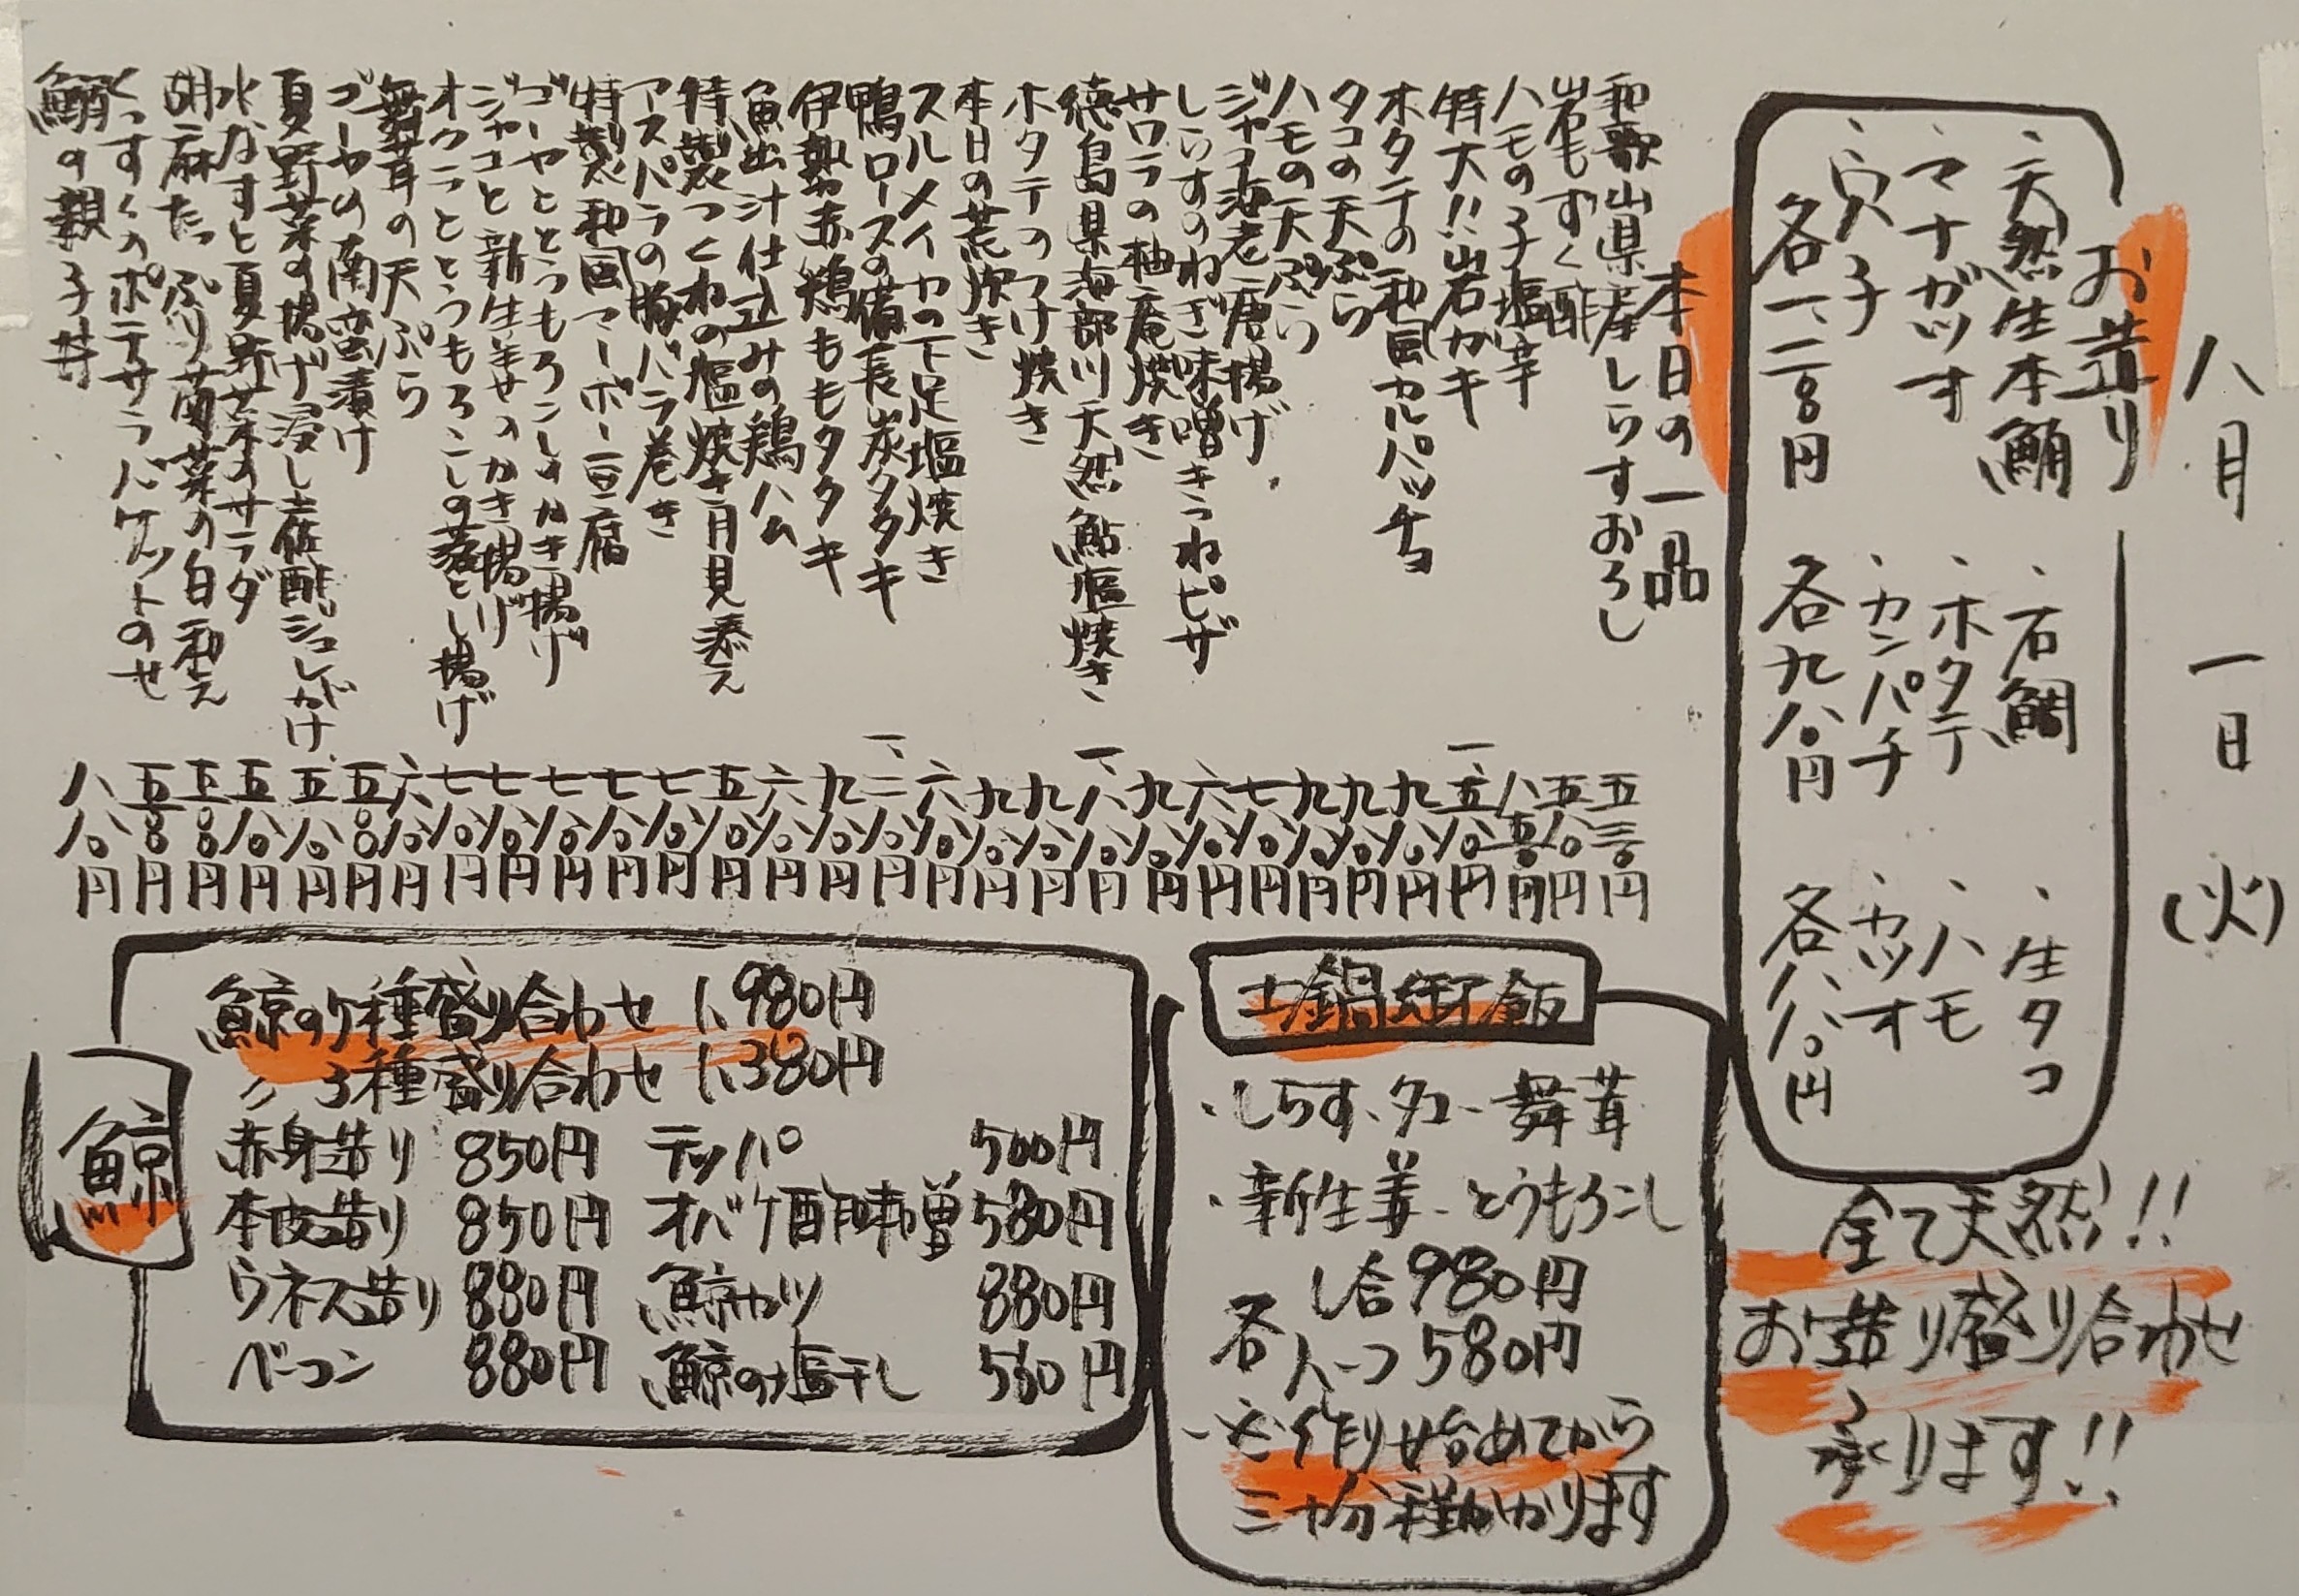 八月一日(火)
お造り
、天然生本鮪
、マナガツオ
、穴子
各一、二八〇円
、石鯛
、ホタテ
、カンパチ
各九八〇円
、生タコ
、ハモ
、カツオ
各八八〇円
全て天然!!
お造り盛り合わせ
承ります!!
本日の一品
和歌山県産しらすおろし 五三〇円
岩もずく酢 五八〇円
ハモの子塩辛 八五〇円
特大!!岩ガキ 一、五八〇円
ホタテの和風カルパッチョ 九八〇円
タコの天ぷら 九八〇円
ハモの天ぷら 九八〇円
ジャコ海老唐揚げ 七八〇円
しらすのねぎ味噌きつねピザ 六八〇円
サワラの柚庵焼き 九八〇円
徳島県海部川天然鮎塩焼き 一、八八〇円
ホタテのつけ焼き 九八〇円
本日の荒炊き 九八〇円
スルメイカの下足塩焼き 六八〇円
鴨ロースの備長炭タタキ 一、二八〇円
伊勢赤鶏ももタタキ 九八〇円
魚出汁仕込みの鶏ハム 六八〇円
特製つくねの塩焼き月見添え 五八〇円
アスパラの豚バラ巻き 七八〇円
特製和風マーボー豆腐 七八〇円
ゴーヤととうもろこしのかき揚げ 七八〇円
ジャコと新生姜のかき揚げ 七八〇円
オクラととうもろこしの落とし揚げ 七八〇円
舞茸の天ぷら 六八〇円
ゴーヤの南蛮漬け 五八〇円
夏野菜の揚げ浸し土佐酢ジュレがけ 五八〇円
水なすと夏野菜のサラダ 五八〇円
胡麻たっぷり菊菜の白和え 五八〇円
くっすくのポテサラバケットのせ 五八〇円
鮪の親子丼 八八〇円
土鍋御飯
・しらす、タコ、舞茸
・新生姜、とうもろこし
各
一合980円
ハーフ580円
炊き作り始めてから
三十分程かかります
鯨
鯨の5種盛り合わせ 1,980円
〃 3種盛り合わせ 1,380円
赤身造り 850円 テッパ 500円
本皮造り 850円 オバケ酢味噌 580円
ウネス造り 880円 鯨カツ 880円
ベーコン 880円 鯨の塩干し 560円